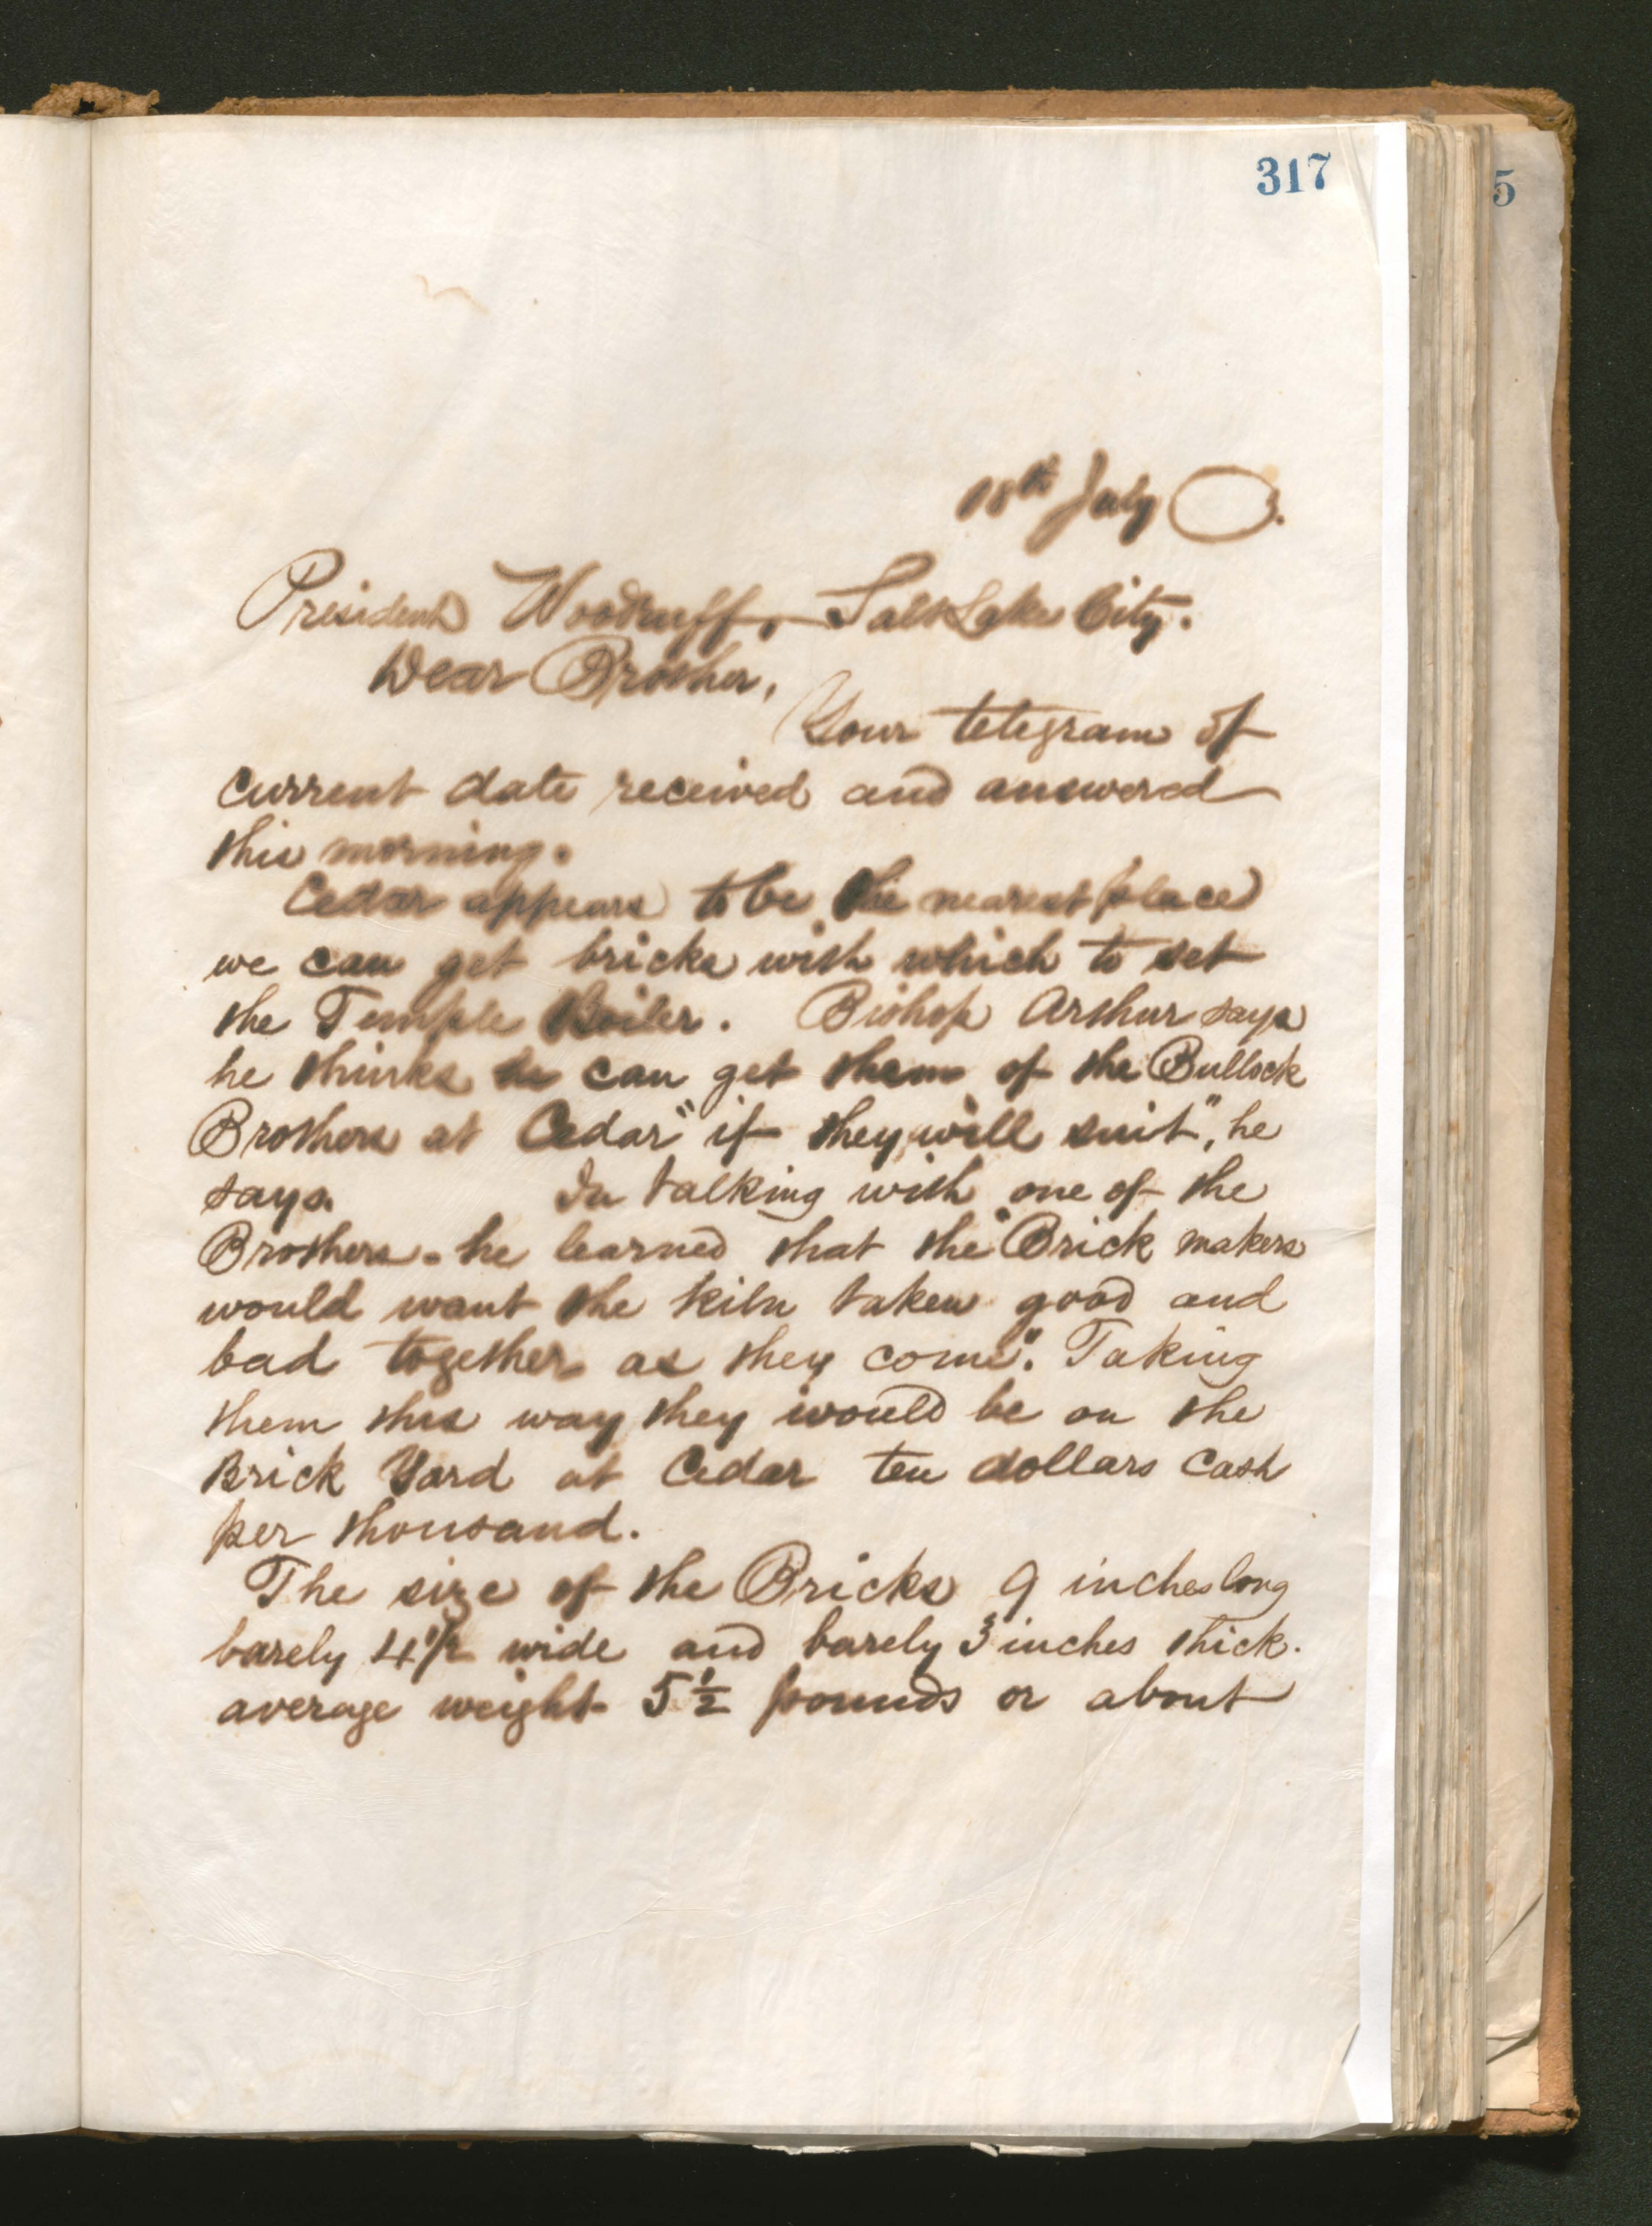 317
5
18th July 3.
President Woodruff, Salt Lake City.
Dear Brother,
Your telegram of
current date received and answered
this morning.
Cedar appears to be the nearest place
we can get bricks with which to set
the Temple Boiler. Bishop Arthur says
he thinks he can get them of the Bullock
Brothers at Cedar "if they will suit", he
says. In talking with one of the
Brothers - he learned that the "Brick makers
would want the kiln taken good and
bad together as they come". Taking
them this way they would be on the
Brick Yard at Cedar ten dollars cash
per thousand.
The size of the Bricks 9 inches long
barely 4 1/2 wide and barely 3 inches thick.
average weight 5 1/2 pounds or about